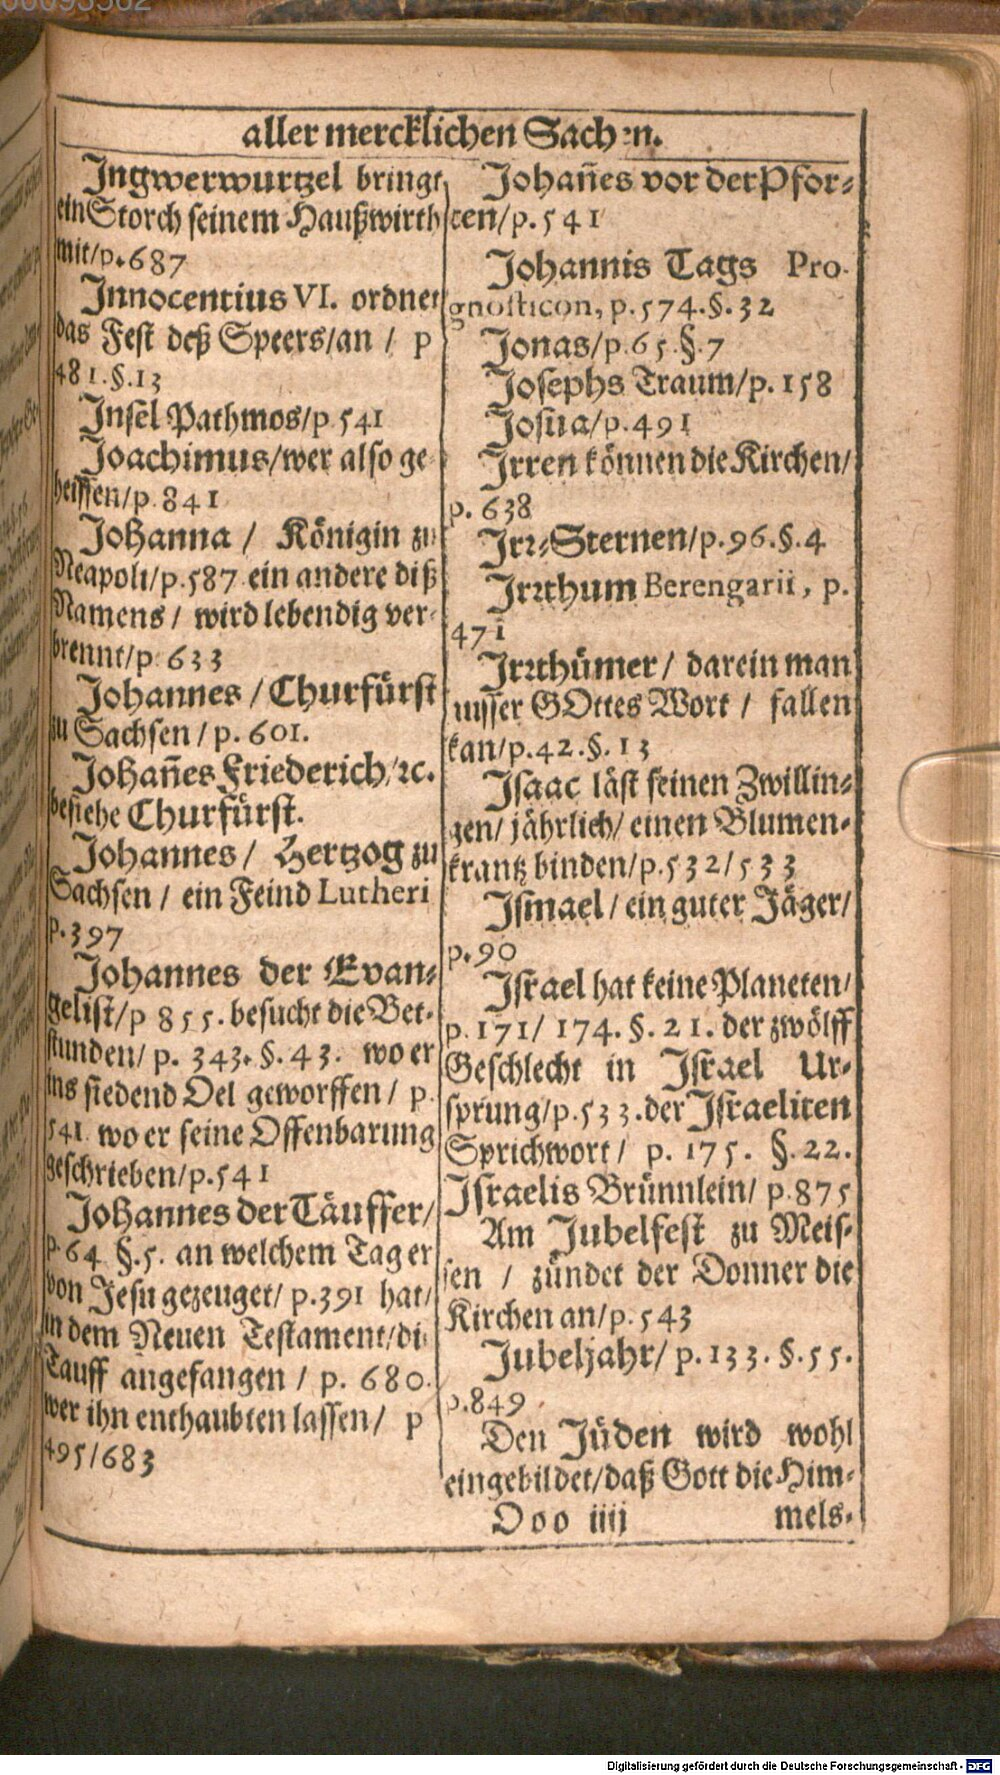 aller mercklichen Sachen.
Ingwerwurtzel bringt
ein Storch seinem Haußwirth
mit/p.687
Innocentius VI. ordnet
das Fest deß Speers/an / p
481.§.13
Insel Pathmos/p 541
Joachimus/wer also ge-
heissen/p. 841
Johanna / Königin zu
Neapoli/p.587 ein andere diß
Namens / wird lebendig ver-
brennt/p. 633
Johannes / Churfürst
zu Sachsen / p. 601.
Johañes Friederich/ꝛc.
besiehe Churfürst.
Johannes / Hertzog zu
Sachsen / ein Feind Lutheri
p.397
Johannes der Evan-
gelist/p 855. besucht die Bet-
stunden/ p. 343. §. 43. wo er
ins siedend Oel geworffen / p.
541. wo er seine Offenbarung
geschrieben/p.541
Johannes der Täuffer/
p.64 §.5. an welchem Tag er
von Jesu gezeuget/ p.391 hat/
in dem Neuen Testament/di
Tauff angefangen / p. 680.
wer ihn enthaubten lassen/ p
495/683
Johañes vor der Pfor-
ten/p.541
Johannis Tags Pro-
gnosticon, p.574.§.32
Jonas/p.65.§.7
Josephs Traum/p.158
Josua/p.491
Irren können die Kirchen/
p.638
Irr-Sternen/p.96.§.4
Irrthum Berengarii, p.
471
Irrthümer / darein man
ausser GOttes Wort / fallen
kan/p.42.§.13
Isaac läst seinen Zwillin-
gen/ jährlich/ einen Blumen-
krantz binden/p.532/533
Ismael / ein guter Jäger/
p.90
Israel hat keine Planeten/
p.171/ 174. §.21. der zwölff
Geschlecht in Israel Ur-
sprung/p.533. der Israeliten
Sprichwort / p. 175. §.22.
Israelis Brünnlein/ p.875
Am Jubelfest zu Meis-
sen / zündet der Donner die
Kirchen an/p.543
Jubeljahr/ p.133. §.55.
p.849
Den Jüden wird wohl
eingebildet/daß Gott die Him-
Ooo iiij mels-
Digitalisierung gefördert durch die Deutsche Forschungsgemeinschaft - DFG